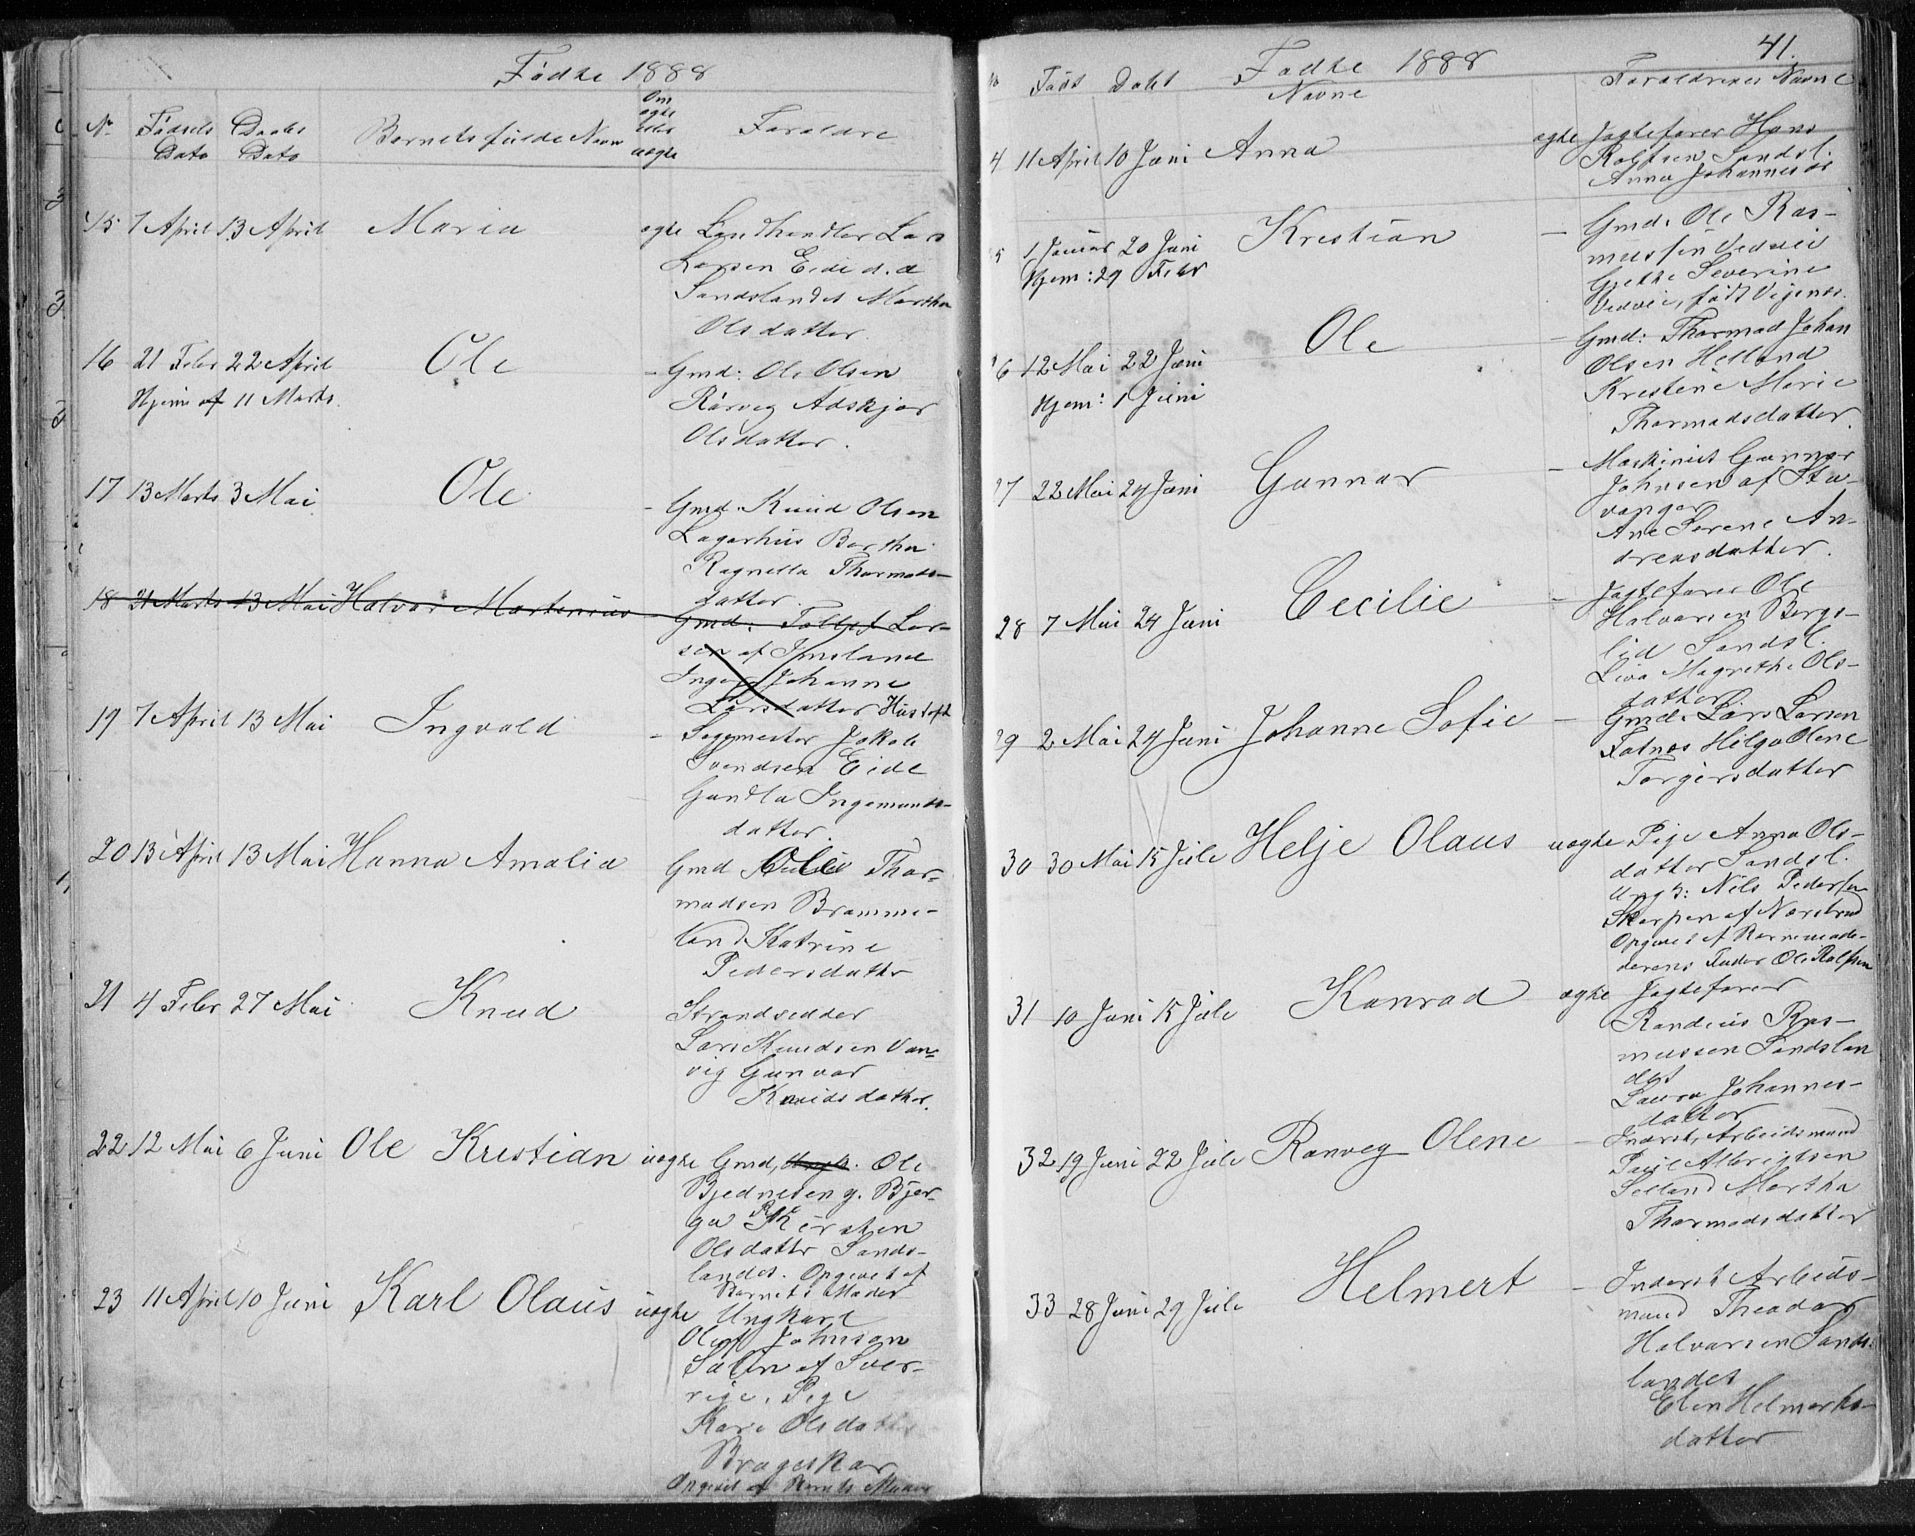 Fødte 1888
No Fødsels Dato Daabs Dato Barnets fulde Navn Om ægte eller uægte Forældre
15 7 April 13 April Maria ægte Landhandler Lars
Larsen Eide d. a
Sandslandet Martha
Olsdatter.
16 21 Febr 22 April Ole - Gmd: Ole Olsen
Hjem: af 11 Marts. Rørveg Adskjer
Olsdatter.
17 13 Marts 3 Mai Ole - Gmd. Knud Olsen
Lagarhus Bertha
Ragnella Thormods-
datter.
18 21 Marts 13 Mai Halvor Martenius - Gmd: Tollef Lar-
sen af Imsland
Inger Johanne
Larsdatter Hustoft
19 7 April 13 Mai Ingvald - Sagmester Jakob
Svendsen Eide
Gundla Ingemunds-
datter.
20 13 April 13 Mai Hanna Amalia Gmd Ole Thor-
madsen Bramme-
land Katrine
Pedersdatter
21 4 Febr 27 Mai Knud Strandsidder
Lars Knudsen Van-
vig Gunvor
Knudsdatter.
22 12 Mai 6 Juni Ole Kristian uægte Gmd, Ungk. Ole
Bjednesen g. Bjer-
ga Kirsten
Olsdatter Sands-
landet. Opgivet af
Barnets Moder
23 11 April 10 Juni Karl Olaus uægte Ungkarl
Olof Johnson
Salin af Sver-
rige. Pige
Kari Olsdatter
Brageskar
Opgivet af Barnets Moder
41.
Fødte 1888
No Født Døbt Navne Forældrenes Navne
4 11 April 10 Juni Anna ægte Jagtefører Hans
Rolfsen Sandsl.
Anna Johannesdr
5 1 Januar 20 Juni Kristian - Gmd. Ole Ras-
Hjem: 29 Febr mussen Vedvei
Gjette Severine
Vedvei, født Vignes.
26 12 Mai 22 Juni Ole - Gmd: Thormod Johan
Hjem: 1 Juni Olsen Helland
Kristene Marie
Thormodsdatter.
27 22 Mai 24 Juni Gunnar - Maskinist Gunnar
Johnsen af Sta-
vanger
Ane Serene An-
dreasdatter.
28 7 Mai 24 Juni Cecilie - Jagtefører Ole
Halvorsen Bergs-
lid Sandsl.
Liva Magrethe Ols-
datter
29 2 Mai 24 Juni Johanne Sofie - Gmd: Lars Larsen
Fatnes Helga Olene
Torgersdatter
30 30 Mai 15 Jule Helje Olaus uægte Pige Anna Ols-
datter Sandsl.
Ungk: Nils Pedersen
Skarpen af Nærstrand
Opgivet af Barnemode-
derens Fader Ole Rolfsen
31 10 Juni 15 Jule Konrad ægte Jagtefører
Randius Ras-
mussen Sandslan
det
Laura Johannes-
datter
32 19 Juni 22 Jule Ranveg Olene - Inderst, Arbeidsmand
Paul Albrigtsen
Selland Martha
Thormodsdatter
33 28 Juni 29 Jule Helmert - Inderst Arbeids-
mand Theodor
Halvorsen Sands-
landet
Elen Helmerts-
datter